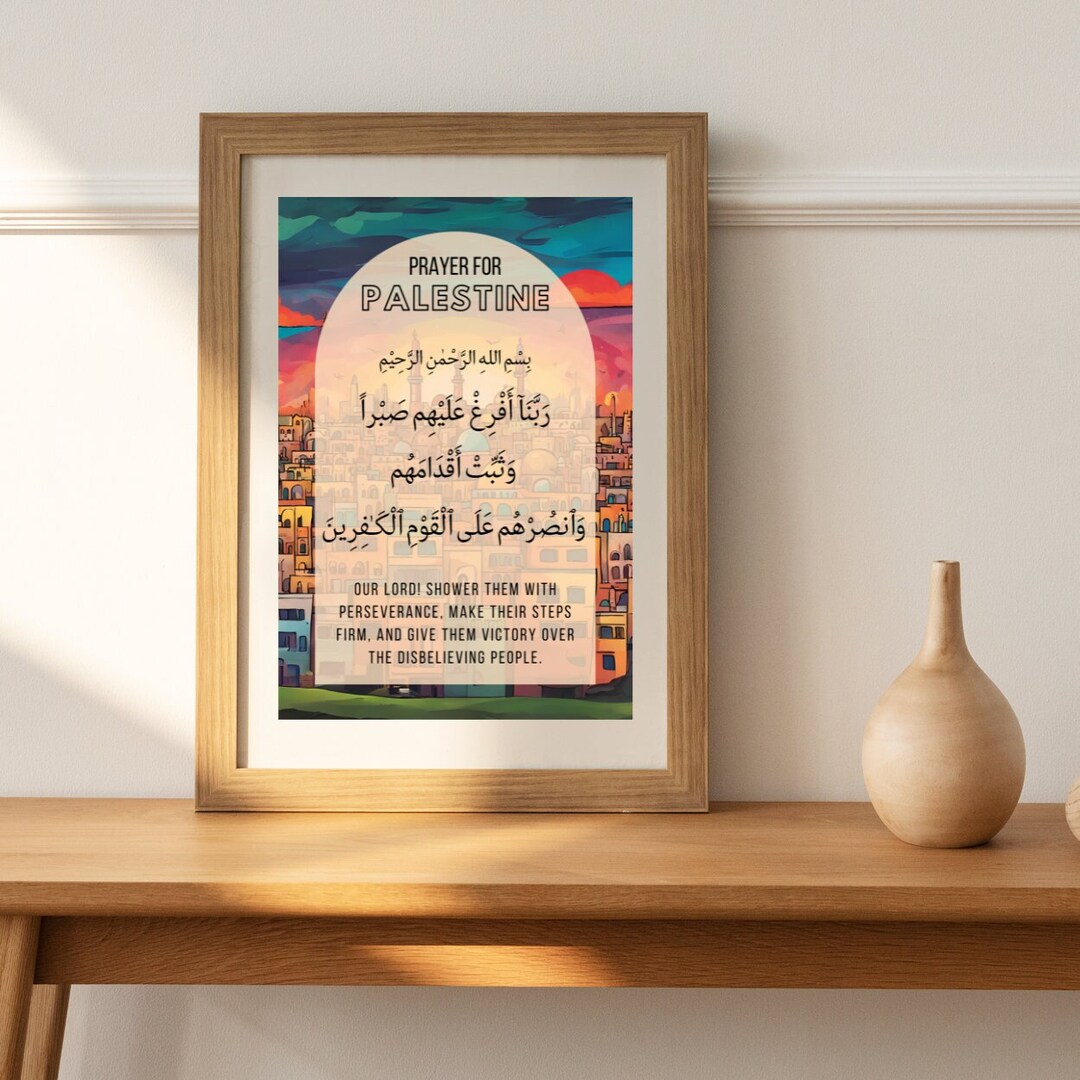 PRAYER FOR
PALESTINE
بِسْمِ اللهِ الرَّحْمٰنِ الرَّحِيْمِ
رَبَّنَآ أَفْرِغْ عَلَيْهِم صَبْراً
وَثَبِّتْ أَقْدَامَهُم
وَٱنصُرْهُم عَلَى ٱلْقَوْمِ ٱلْكَـٰفِرِينَ
OUR LORD! SHOWER THEM WITH
PERSEVERANCE, MAKE THEIR STEPS
FIRM, AND GIVE THEM VICTORY OVER
THE DISBELIEVING PEOPLE.